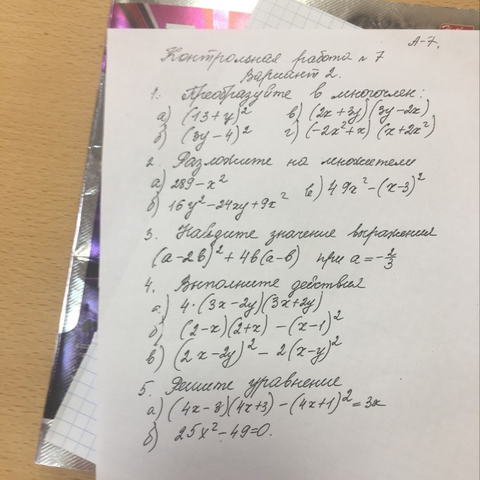 А-7.
Контрольная работа №7
Вариант 2.
1. Преобразуйте в многочлен:
а) (13+y)² в) (2x+3y)(3y-2x)
б) (3y-4)² г) (-2x²+x)(x+2x²)
2. Разложите на множители
а) 289-x² в) 49x²-(x-3)²
б) 16y²-24xy+9x²
3. Найдите значение выражения
(a-2b)²+4b(a-b) при a=-1/3
4. Выполните действия
а) 4·(3x-2y)(3x+2y)
б) (2-x)(2+x)-(x-1)²
в) (2x-2y)²-2(x-y)²
5. Решите уравнение
а) (4x-3)(4x+3)-(4x+1)²=3x
б) 25x²-49=0.